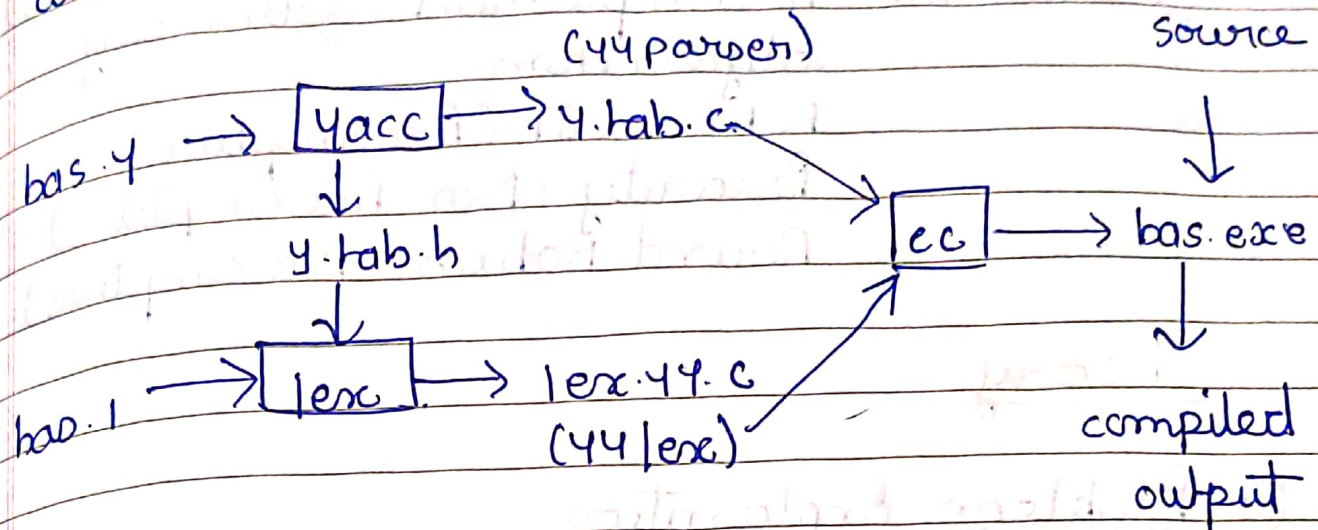 (yyparser)
source
bas.y → yacc → y.tab.c
y.tab.h
cc → bas.exe
bas.l → lex → lex.yy.c
(yylex)
compiled
output